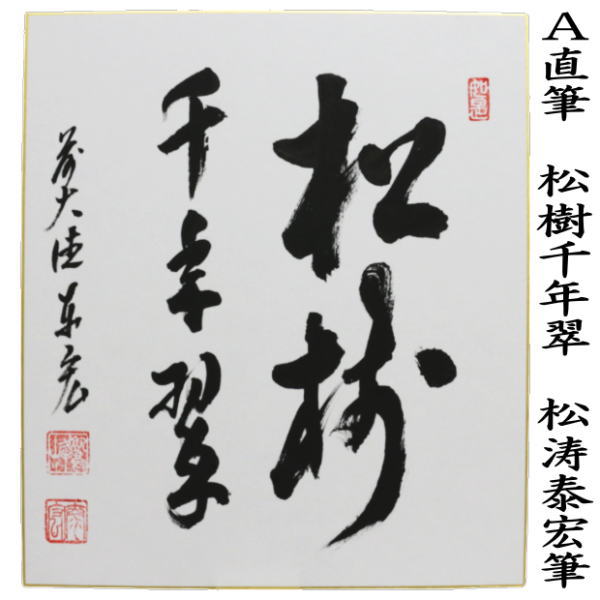 A直筆 松樹千年翠 松涛泰宏筆
如是
松樹
千年翠
前大徳泰宏